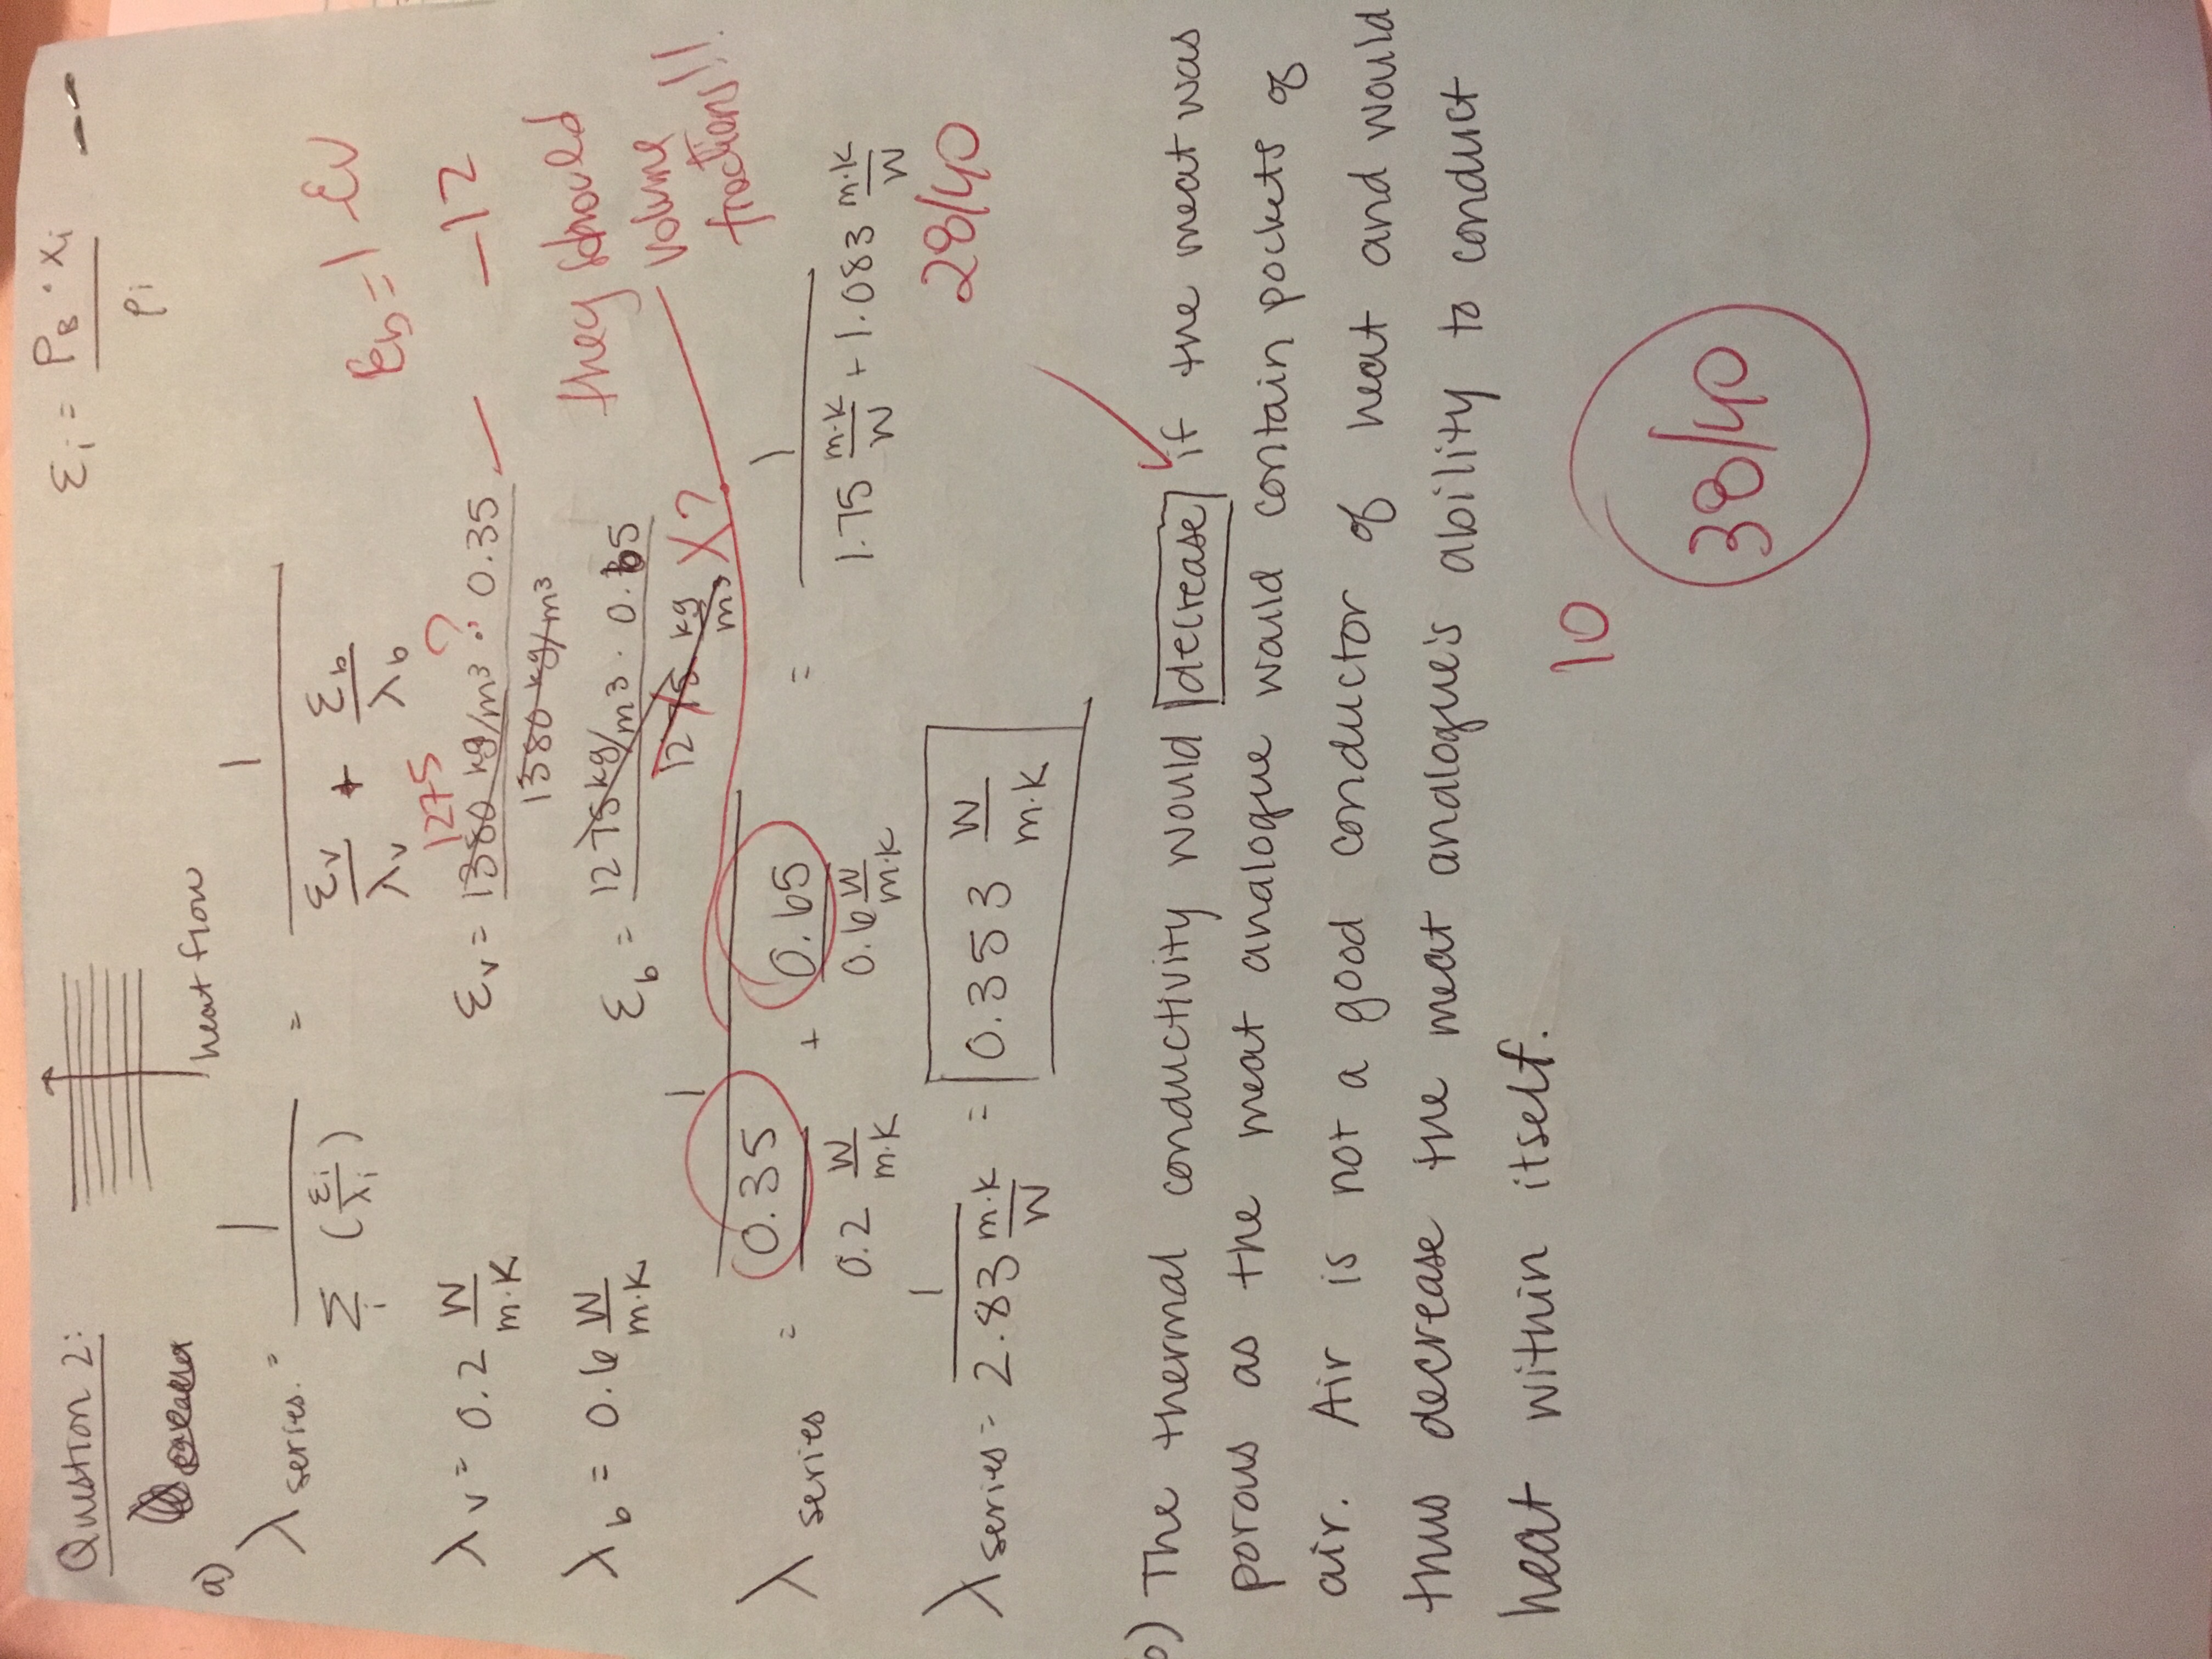 Question 2:
εi = ρB · xi / ρi
heat flow
a)
λ series = 1 / Σi (εi/λi) = 1 / (εv/λv + εb/λb)
Eb = 1 - εv
λv = 0.2 W/m·K
1275 ?
εv = 1380 kg/m3 · 0.35 / 1380 kg/m3
-12
λb = 0.6 W/m·K
εb = 1275 kg/m3 · 0.65 / 1275 kg/m3 X?
they should
volume
fractions!!
λ series = 1 / (0.35 / 0.2 W/m·K + 0.65 / 0.6 W/m·K) = 1 / (1.75 m·K/W + 1.083 m·K/W)
28/40
λ series = 1 / 2.83 m·K/W = 0.353 W/m·K
b) The thermal conductivity would decrease if the meat was
porous as the meat analogue would contain pockets of
air. Air is not a good conductor of heat and would
thus decrease the meat analogue's ability to conduct
heat within itself.
10
38/40